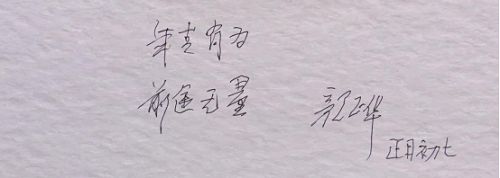 年青有为
前途无量
正月初七